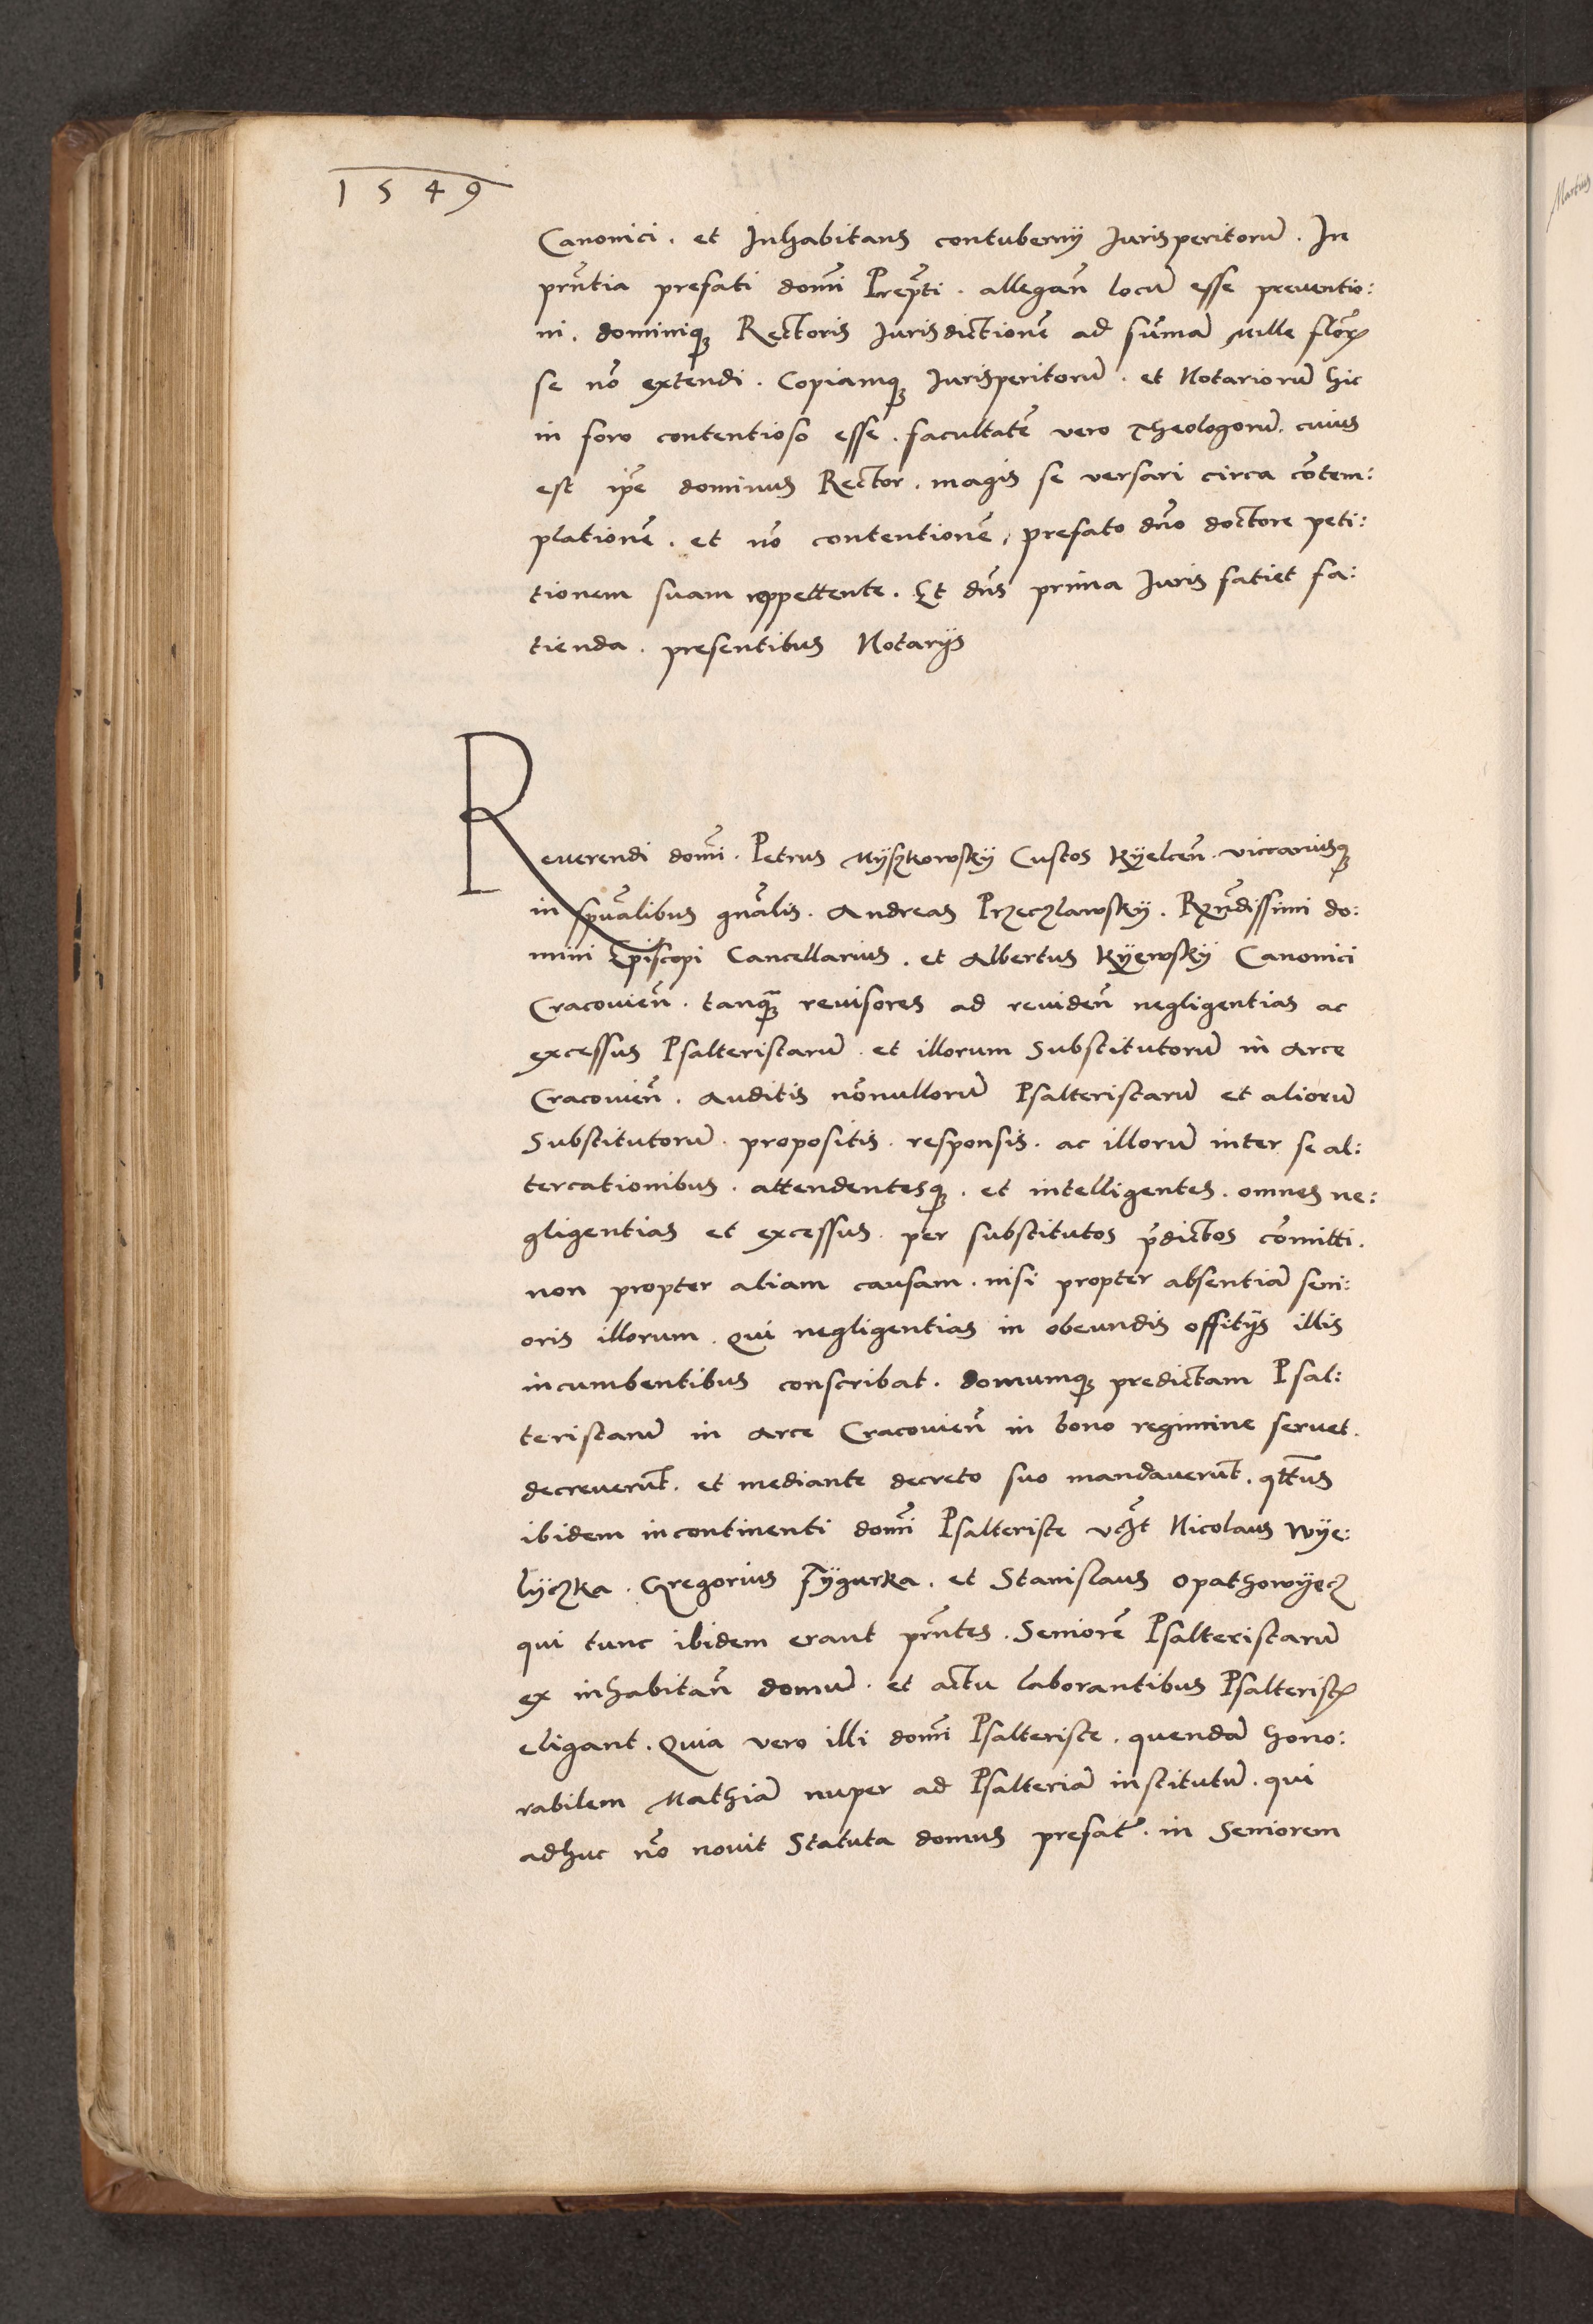 1549
Canonici . et Inhabitans contubernij Jurisperitorũ . In
prñtia prefati domĩ Prep̃ti . allegañ locũ esse preuentio:
ni . dominiqꝫ Rectoris Jurisdictionẽ ad sum̃ã Mille florꝝ
se nõ extendi . Copiamqꝫ Jurisperitorũ . et Notariorũ hic
in foro contentioso esse . facultatẽ vero Theologorũ . cuius
est ip̃e dominus Rector . magis se versari circa cõtem:
plationẽ . et nõ contentionẽ , prefato dño doctore peti:
tionem suam reppettente . Et dñs prima Juris fatiet fa:
tienda . presentibus Notarijs
Reuerendi domĩ . Petrus Myszkowskÿ Custos Kÿelceñ . viccariusqꝫ
in spũalibus gnãlis . Andreas Przeczlawskÿ . Rẽndissimi do:
mini Episcopi Cancellarius . et Albertus Kÿewskÿ Canonici
Cracouieñ . tanqꝫ̃ reuisores ad reuideñ negligentias ac
excessus Psalteristarũ . et illorum Substitutorũ in Arce
Cracouieñ . Auditis nõnullorũ Psalteristarũ et aliorũ
Substitutorũ . propositis . responsis . ac illorũ inter se al:
tercationibus . attendentesqꝫ . et intelligentes . omnes ne:
gligentias et excessus . per substitutos p̃dictos cõmitti .
non propter aliam causam . nisi propter absentiã seni:
oris illorum . Qui negligentias in obeundis offitijs illis
incumbentibus conscribat . domumqꝫ predictam Psal:
teristarũ in Arce Cracouieñ in bono regimine seruet .
decreuerũt . et mediante decreto suo mandauerũt . qt̃us
ibidem incontinenti domĩ Psalteriste vcꝫt Nicolaus Wÿe:
lÿczka . Gregorius Fÿgurka . et Stanislaus Opathowÿecz
qui tunc ibidem erant prñtes . Seniorẽ Psalteristarũ
ex inhabitañ domũ . et actu laborantibus Psalteristꝭ
eligant . Quia vero illi domĩ Psalteriste . quendã hono:
rabilem Mathiã nuper ad Psalteriã institutũ . qui
adhuc nõ nouit Statuta domus prefatę . in Seniorem